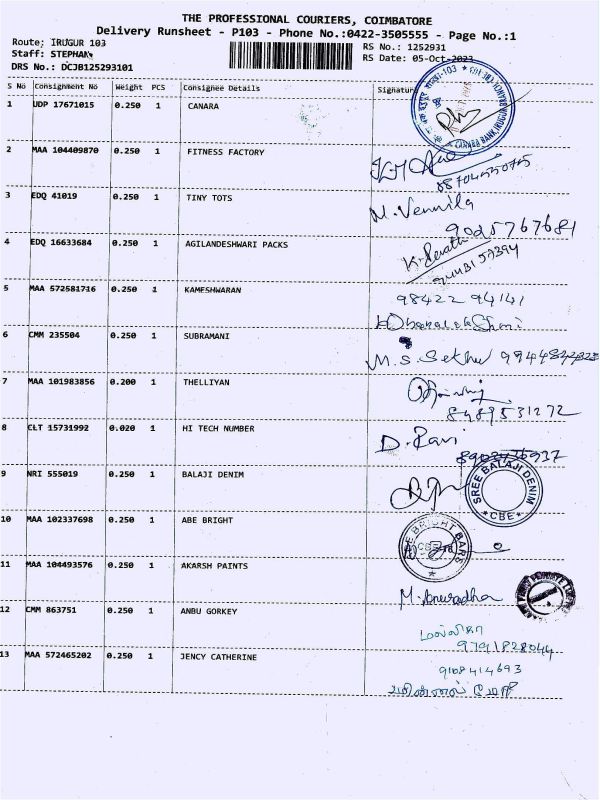 THE PROFESSIONAL COURIERS, COIMBATORE
Delivery Runsheet - P103 - Phone No.:0422-3505555 - Page No.:1
Route; IRUGUR 103
Staff: STEPHAN
DRS No.: DCJB125293101
RS No.: 1252931
RS Date: 05-Oct-2023
S No Consignment No Weight PCS Consignee Details Signature
1 UDP 17671015 0.250 1 CANARA
2 MAA 104409870 0.250 1 FITNESS FACTORY
3 EDQ 41019 0.250 1 TINY TOTS M. Vennila
9025767681
4 EDQ 16633684 0.250 1 AGILANDESHWARI PACKS
5 MAA 572581716 0.250 1 KAMESHWARAN 98422 94141
6 CMM 235504 0.250 1 SUBRAMANI M.S. Sethu
7 MAA 101983856 0.200 1 THELLIYAN
8489531272
8 CLT 15731992 0.020 1 HI TECH NUMBER D. Ravi
9 NRI 555019 0.250 1 BALAJI DENIM SREE BALAJI DENIM
* CBE *
10 MAA 102337698 0.250 1 ABE BRIGHT
11 MAA 104493576 0.250 1 AKARSH PAINTS M. Anuradha
12 CMM 863751 0.250 1 ANBU GORKEY
9791828044
13 MAA 572465202 0.250 1 JENCY CATHERINE 9108414693